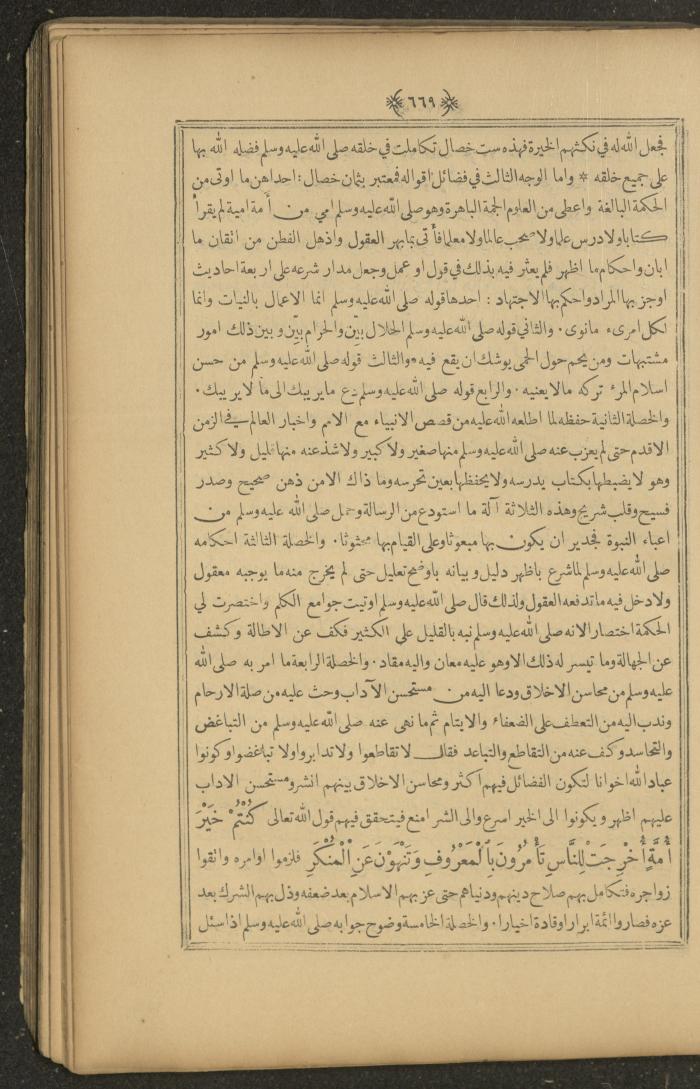 ٦٦٩
فجعل الله له في نكثهم الخيرة فهذه ست خصال تكاملت في خلقه صلى الله عليه وسلم فضله الله بها
على جميع خلقه * واما الوجه الثالث في فضائل اقواله فمعتبر بثمان خصال : احداهن ما اوتى من
الحكمة البالغة واعطى من العلوم الجمة الباهرة وهو صلى الله عليه وسلم امي من أمة امية لم يقرأ
كتابا ولا درس علما ولا صحب عالما ولا معلما فأتى بما بهر العقول واذهل الفطن من اتقان ما
ابان واحكام ما اظهر فلم يعثر فيه بذلك في قول او عمل وجعل مدار شرعه على اربعة احاديث
اوجز بها المراد واحكم بها الاجتهاد : احدها قوله صلى الله عليه وسلم انما الاعمال بالنيات وانما
لكل امرىء مانوى . والثاني قوله صلى الله عليه وسلم الحلال بيّن والحرام بيّن وبين ذلك امور
مشتبهات ومن يحم حول الحمى يوشك ان يقع فيه . والثالث قوله صلى الله عليه وسلم من حسن
اسلام المرء تركه مالا يعنيه . والرابع قوله صلى الله عليه وسلم دع ما يريبك الى ما لا يريبك .
والخصلة الثانية حفظه لما اطلعه الله عليه من قصص الانبياء مع الامم واخبار العالم في الزمن
الاقدم حتى لم يعزب عنه صلى الله عليه وسلم منها صغير ولا كبير ولا شذ عنه منها قليل ولا كثير
وهو لا يضبطها بكتاب يدرسه ولا يحفظها بعين تحرسه وما ذاك الا من ذهن صحيح وصدر
فسيح وقلب شريح وهذه الثلاثة آلة ما استودع من الرسالة وحمل صلى الله عليه وسلم من
اعباء النبوة فجدير ان يكون بها مبعوثا وعلى القيام بها محثوثا . والخصلة الثالثة احكامه
صلى الله عليه وسلم لما شرع باظهر دليل وبيانه باوضح تعليل حتى لم يخرج منه ما يوجبه معقول
ولا دخل فيه ما تدفعه العقول ولذلك قال صلى الله عليه وسلم اوتيت جوامع الكلم واختصرت لي
الحكمة اختصارا لانه صلى الله عليه وسلم نبه بالقليل على الكثير فكف عن الاطالة وكشف
عن الجهالة وما تيسر له ذلك الا وهو عليه معان واليه مقاد . والخصلة الرابعة ما امر به صلى الله
عليه وسلم من محاسن الاخلاق ودعا اليه من مستحسن الآداب وحث عليه من صلة الارحام
وندب اليه من التعطف على الضعفاء والايتام ثم ما نهى عنه صلى الله عليه وسلم من التباغض
والتحاسد وكف عنه من التقاطع والتباعد فقال لا تقاطعوا ولا تدابروا ولا تباغضوا وكونوا
عباد الله اخوانا لتكون الفضائل فيهم اكثر ومحاسن الاخلاق بينهم انشر ومستحسن الاداب
عليهم اظهر ويكونوا الى الخير اسرع والى الشر امنع فيتحقق فيهم قول الله تعالى كُنْتُمْ خَيْرَ
أُمَّةٍ أُخْرِجَتْ لِلنَّاسِ تَأْمُرُونَ بِٱلْمَعْرُوفِ وَتَنْهَوْنَ عَنِ ٱلْمُنْكَرِ فلزموا اوامره واتقوا
زواجره فتكامل بهم صلاح دينهم ودنياهم حتى عز بهم الاسلام بعد ضعفه وذل بهم الشرك بعد
عزه فصاروا ائمة ابرارا وقادة اخيارا . والخصلة الخامسة وضوح جوابه صلى الله عليه وسلم اذا سئل